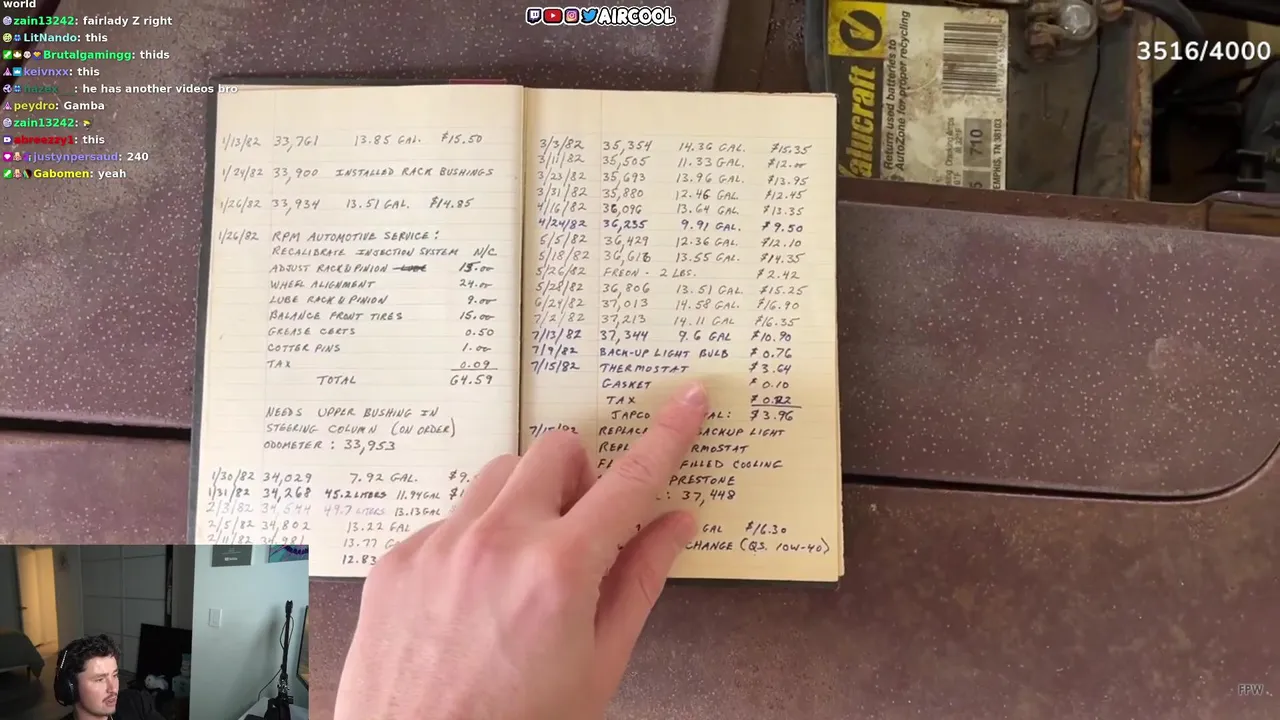 world
zain13242: fairlady Z right
LitNando: this
Brutalgamingg: thids
keivnxx: this
nazex_: he has another videos bro
peydro: Gamba
zain13242:
abreezzy1: this
justynpersaud: 240
Gabomen: yeah
AIRCOOL
3516/4000
Valucraft
Return used batteries to
AutoZone for proper recycling
710
MEMPHIS, TN 38103
1/13/82 33,761 13.85 GAL. $15.50
1/24/82 33,900 INSTALLED RACK BUSHINGS
1/26/82 33,934 13.51 GAL. $14.85
1/26/82 RPM AUTOMOTIVE SERVICE:
RECALIBRATE INJECTION SYSTEM N/C
ADJUST RACK & PINION 15.00
WHEEL ALIGNMENT 24.00
LUBE RACK & PINION 9.00
BALANCE FRONT TIRES 15.00
GREASE CERTS 0.50
COTTER PINS 1.00
TAX 0.09
TOTAL 64.59
NEEDS UPPER BUSHING IN
STEERING COLUMN (ON ORDER)
ODOMETER: 33,953
1/30/82 34,029 7.92 GAL. $9.
1/31/82 34,268 45.2 LITERS 11.94 GAL
2/3/82 34,544 49.7 LITERS 13.13 GAL
2/5/82 34,802 13.22 GAL
2/11/82 34,981 13.77
12.83
3/3/82 35,354 14.36 GAL. $15.35
3/11/82 35,505 11.33 GAL. $12.00
3/23/82 35,693 13.96 GAL. $13.95
3/31/82 35,880 12.46 GAL. $12.45
4/16/82 36,096 13.64 GAL. $13.35
4/24/82 36,235 9.91 GAL. $9.50
5/5/82 36,429 12.36 GAL. $12.10
5/18/82 36,616 13.55 GAL. $14.35
5/26/82 FREON - 2 LBS. $2.42
5/28/82 36,806 13.51 GAL. $15.25
6/24/82 37,013 14.58 GAL. $16.90
7/2/82 37,213 14.11 GAL $16.35
7/13/82 37,344 9.6 GAL $10.90
7/9/82 BACK-UP LIGHT BULB $0.76
7/15/82 THERMOSTAT $3.64
GASKET $0.10
TAX $0.22
JAPCO AL: $3.96
7/15/82 REPLAC BACKUP LIGHT
REPL RMOSTAT
FILLED COOLING
PRESTONE
: 37,448
GAL $16.30
CHANGE (QS. 10W-40)
FPW